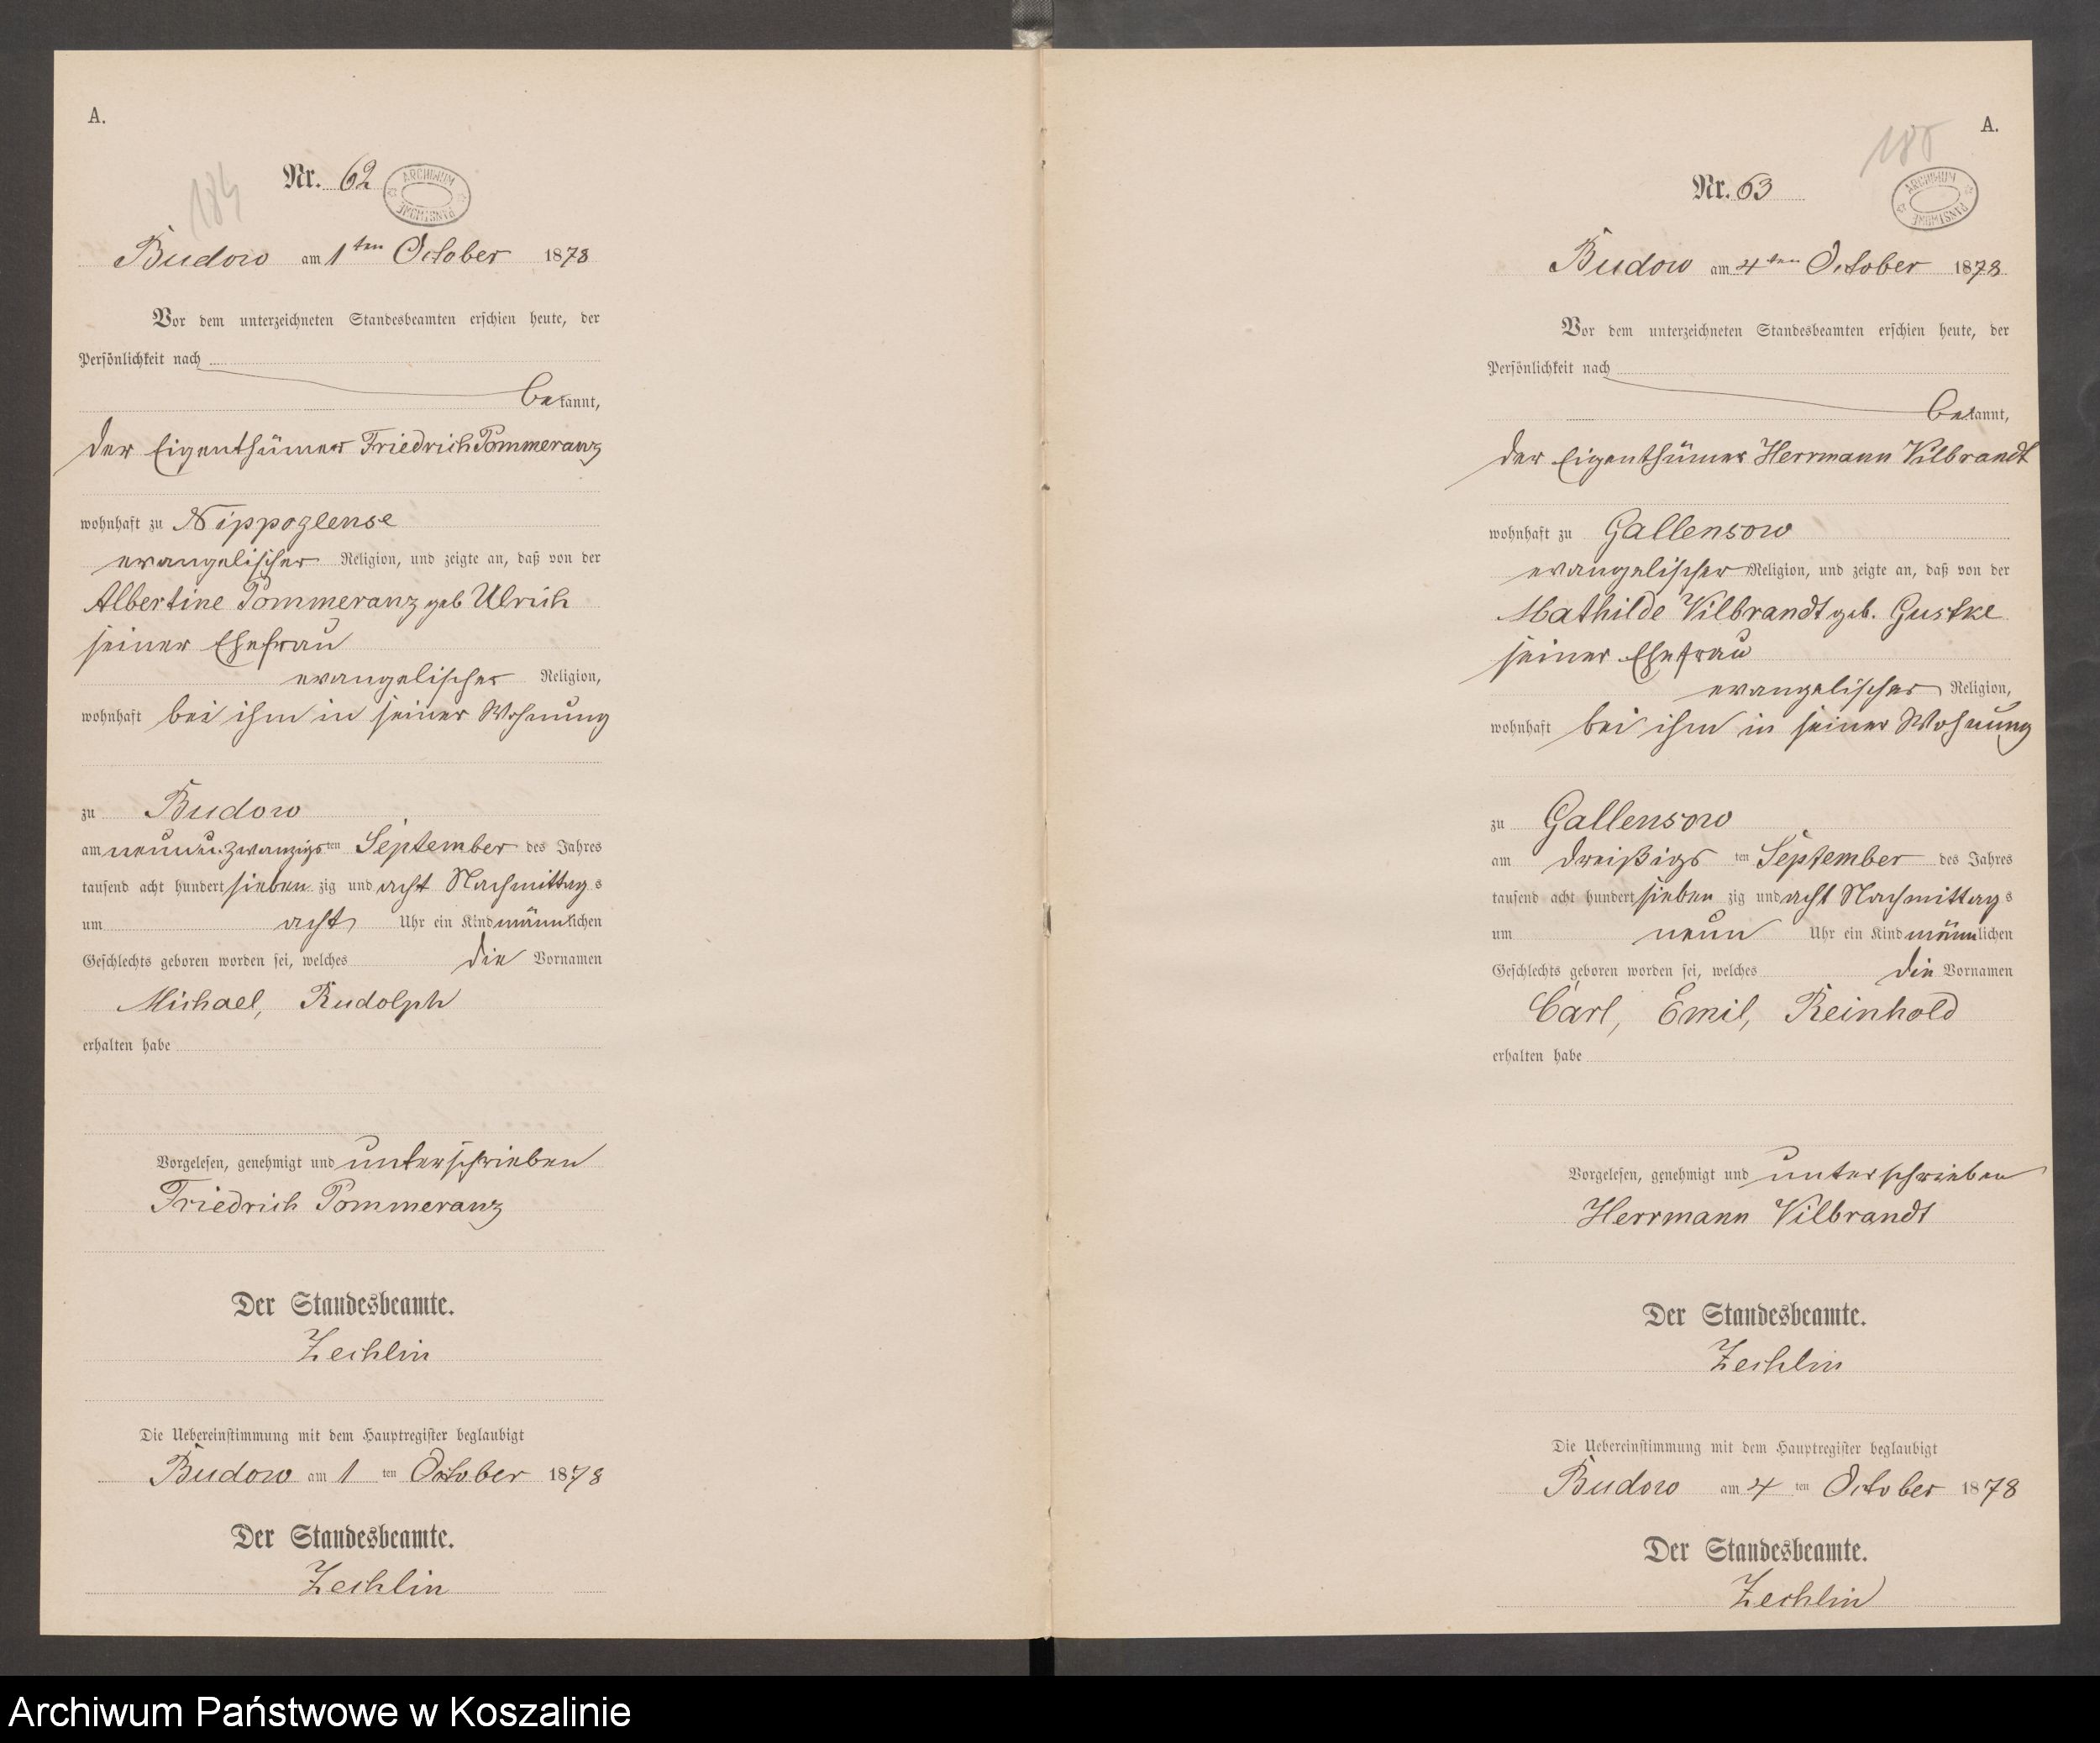 A.
184
Nr. 62
ARCHIWUM PAŃSTWOWE
Budow am 1ten October 1878
Vor dem unterzeichneten Standesbeamten erschien heute, der
Persönlichkeit nach
bekannt,
der Eigenthümer Friedrich Pommeranz
wohnhaft zu Nippoglense
evangelischer Religion, und zeigte an, daß von der
Albertine Pommeranz geb Ulrich
seiner Ehefrau
evangelischer Religion,
wohnhaft bei ihm in seiner Wohnung
zu Budow
am neunu.zwanzigsten September des Jahres
tausend acht hundert sieben zig und acht Nachmittags
um acht Uhr ein Kind männlichen
Geschlechts geboren worden sei, welches die Vornamen
Michael, Rudolph
erhalten habe
Vorgelesen, genehmigt und unterschrieben
Friedrich Pommeranz
Der Standesbeamte.
Zechlin
Die Uebereinstimmung mit dem Hauptregister beglaubigt
Budow am 1 ten October 1878
Der Standesbeamte.
Zechlin
A.
185
Nr. 63
ARCHIWUM PAŃSTWOWE
Budow am 4ten October 1878
Vor dem unterzeichneten Standesbeamten erschien heute, der
Persönlichkeit nach
bekannt,
der Eigenthümer Herrmann Vilbrandt
wohnhaft zu Gallensow
evangelischer Religion, und zeigte an, daß von der
Mathilde Vilbrandt geb. Gustke
seiner Ehefrau
evangelischer Religion,
wohnhaft bei ihm in seiner Wohnung
zu Gallensow
am dreißigs ten September des Jahres
tausend acht hundert sieben zig und acht Nachmittags
um neun Uhr ein Kind männlichen
Geschlechts geboren worden sei, welches die Vornamen
Carl, Emil, Reinhold
erhalten habe
Vorgelesen, genehmigt und unterschrieben
Herrmann Vilbrandt
Der Standesbeamte.
Zechlin
Die Uebereinstimmung mit dem Hauptregister beglaubigt
Budow am 4 ten October 1878
Der Standesbeamte.
Zechlin
Archiwum Państwowe w Koszalinie